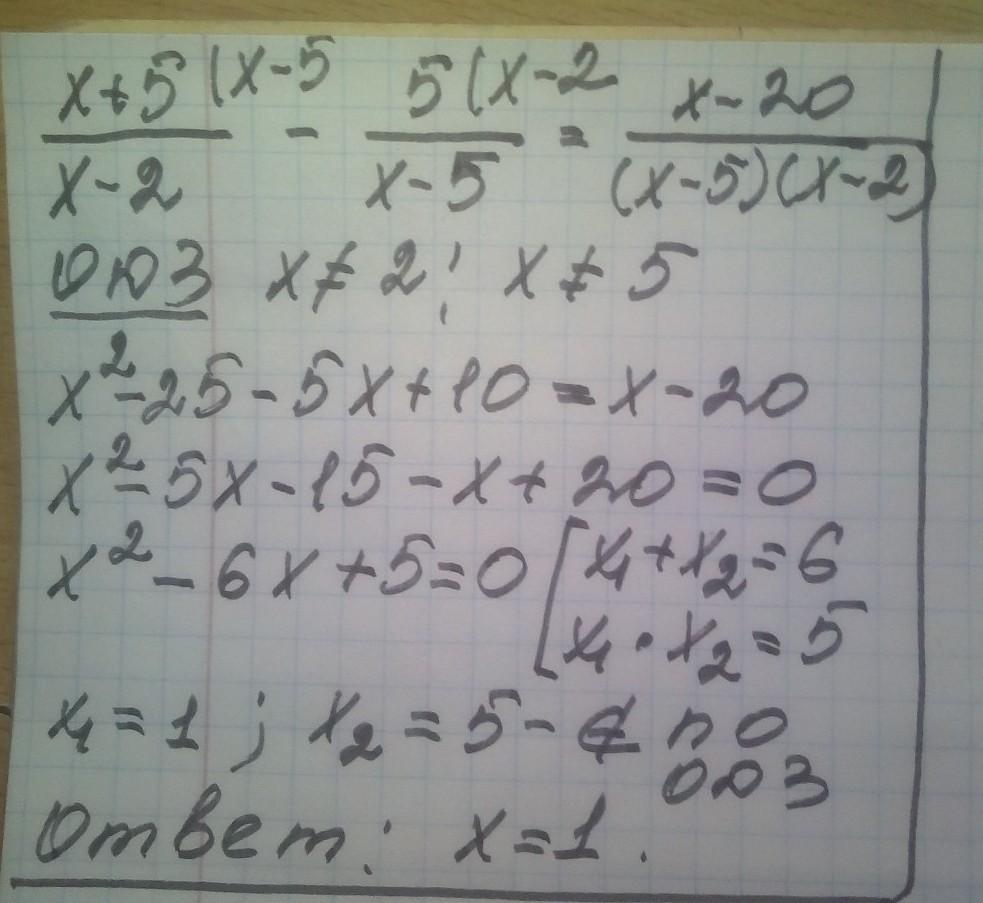 x+5 (x-5 / x-2 - 5 (x-2 / x-5 = x-20 / (x-5)(x-2)
ОДЗ x≠2; x≠5
x²-25-5x+10=x-20
x²-5x-15-x+20=0
x²-6x+5=0 [x₁+x₂=6
x₁·x₂=5
x₁=1; x₂=5-∉ по
ОДЗ
Ответ: x=1.